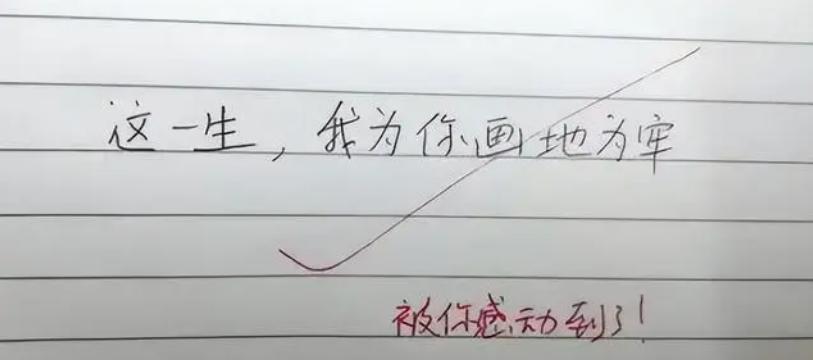 这一生，我为你画地为牢
被你感动到了！